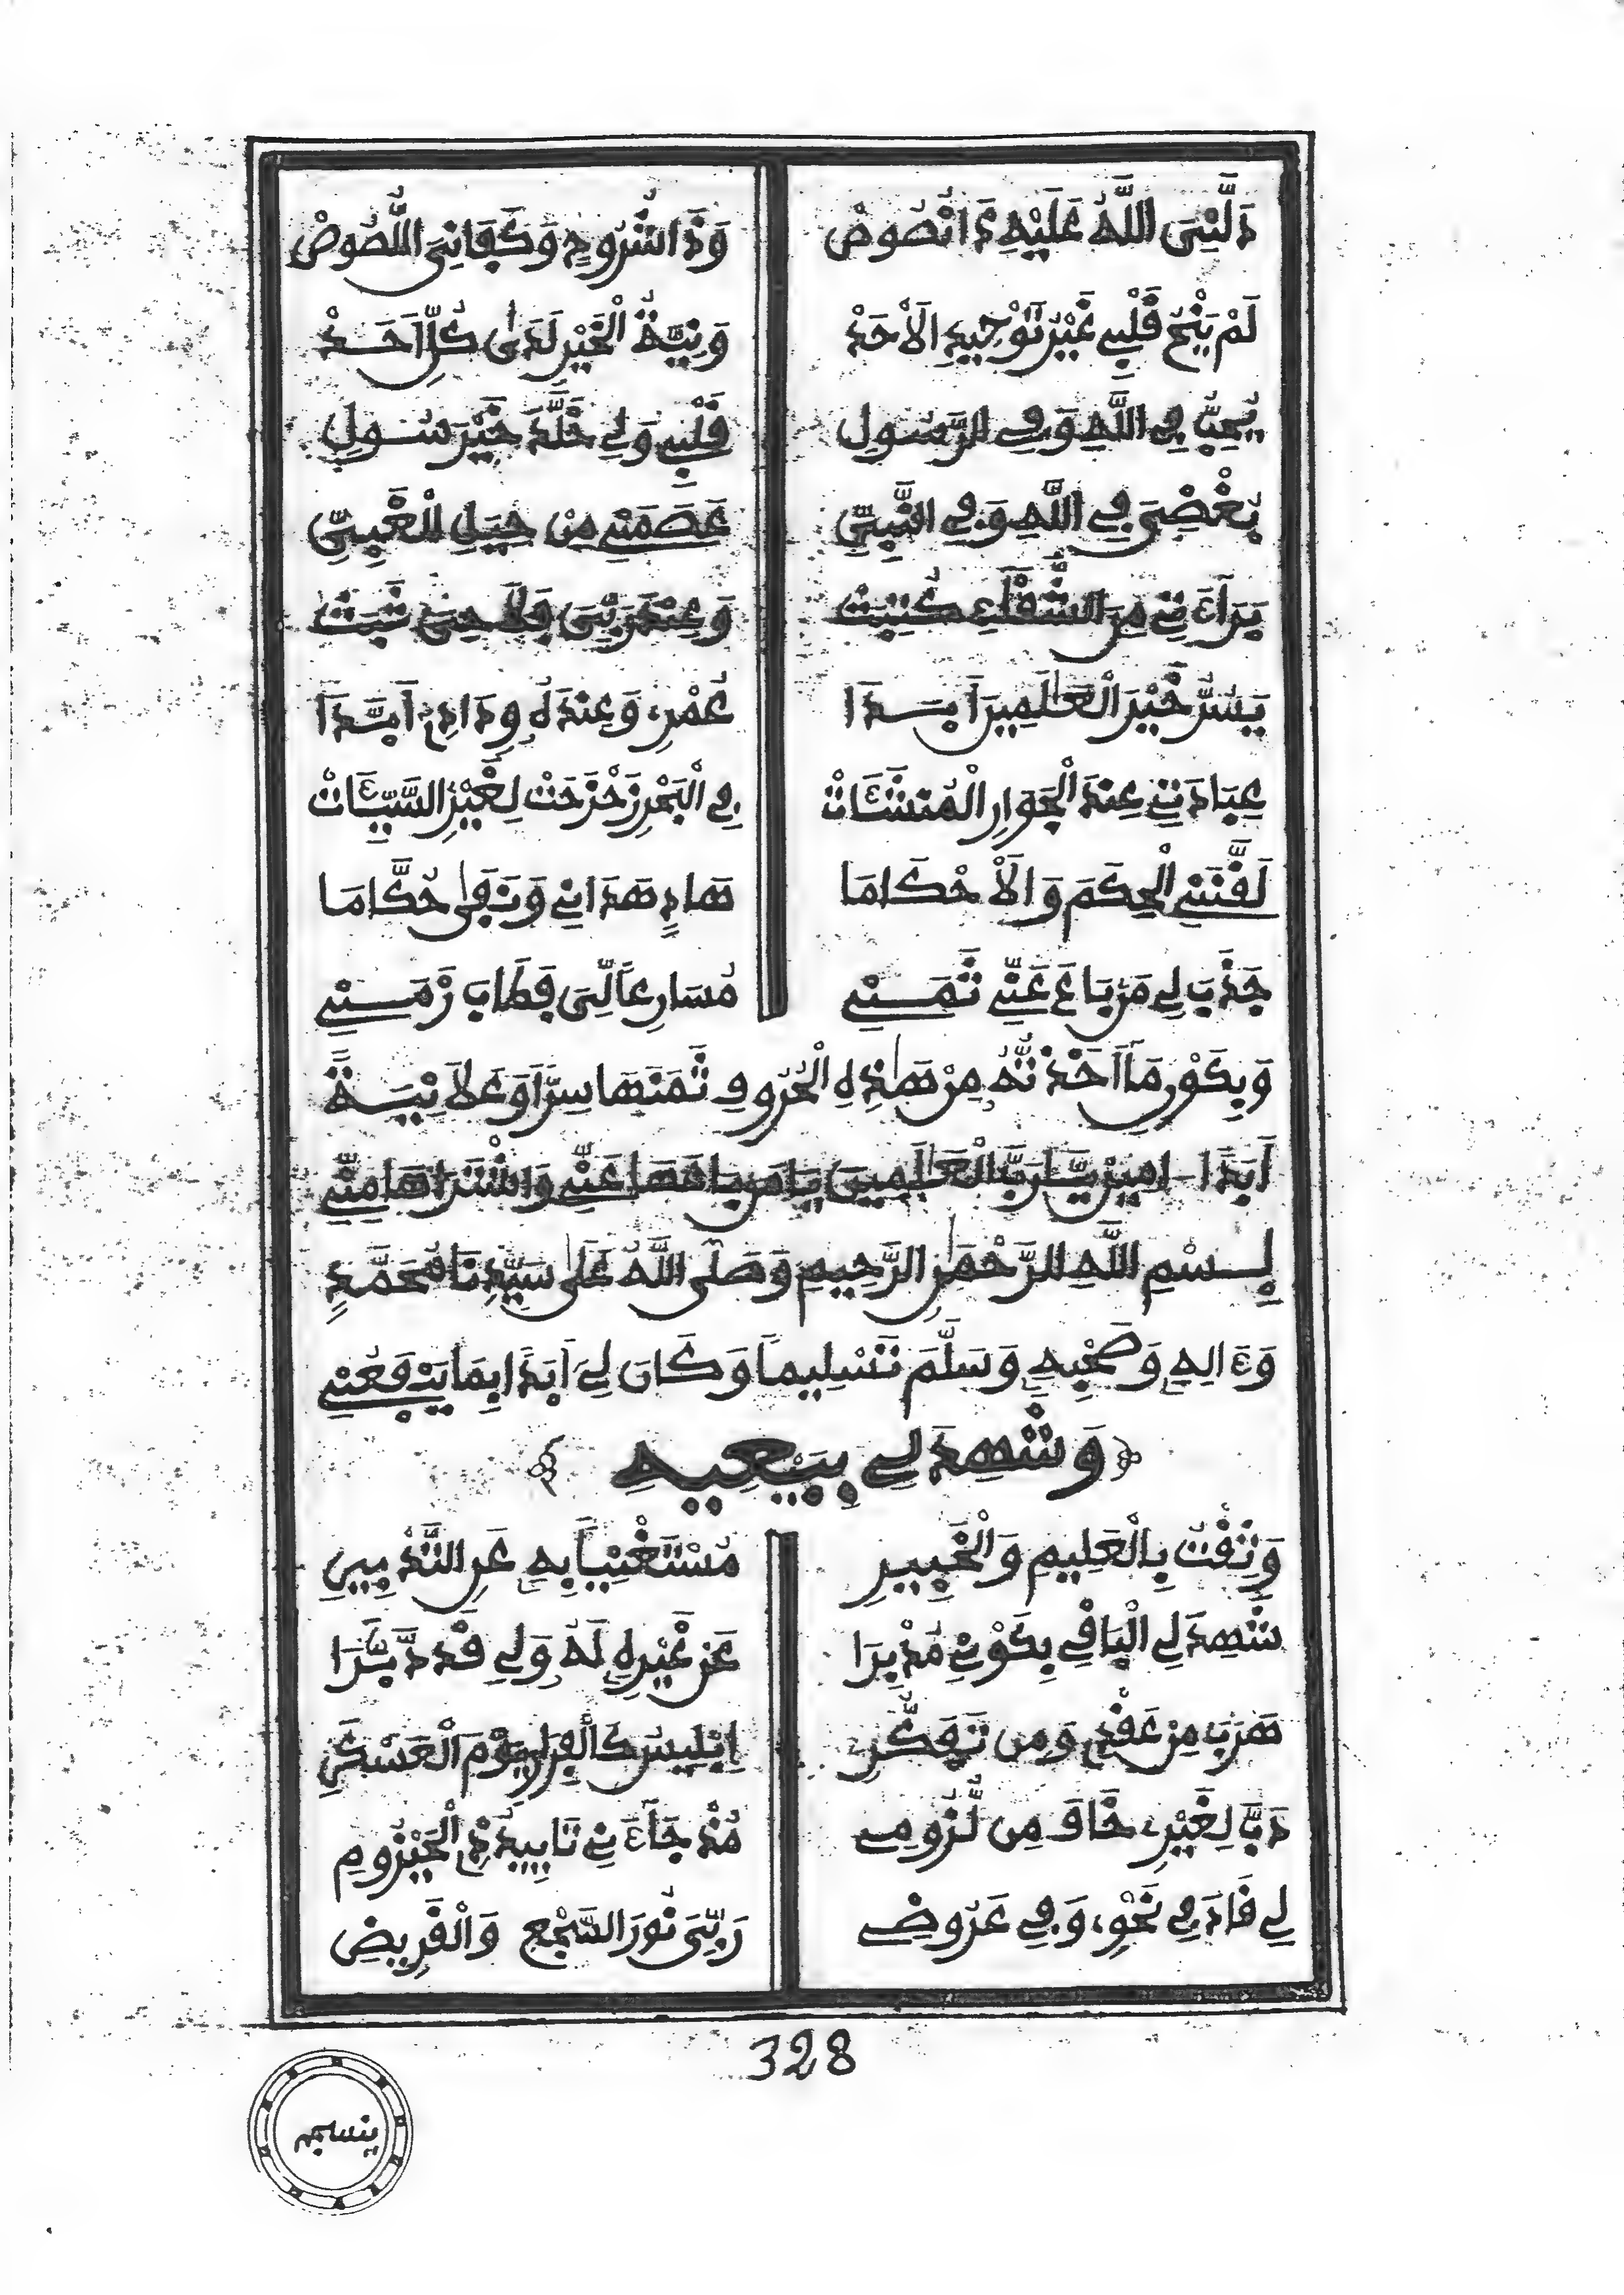 دَلَّنِىَ اللَّهُ عَلَيْهِ ذَا نُصُوصْ وَذَا شُرُوحٍ وَكَفَانِىَ اللُّصُوصْ
لَمْ يَنْحُ قَلْبِى غَيْرَ تَوْحِيدِ الْأَحَدْ وَنِيَّةُ الْخَيْرِ لَدَىٰ كُلِّ أَحَدْ
يُحِبُّ فِى اللَّهِ وَفِى الرَّسُولِ قَلْبِى وَلِى خَلَّدَ خَيْرَ سُولِ
بُغْضِىَ فِى اللَّهِ وَفِى النَّبِىِّ عَصَمَنِى مِنْ حِيَلِ الْغَبِىِّ
بَرَاءَتِى مِنَ الشَّقَاءِ كُتِبَتْ وَعِنْدَ رَبِّىَ فَلَاحِىَ ثَبَتْ
يَسُرُّ خَيْرَ الْعَٰلَمِينَ أَبَدَا عُمْرِى وَعِنْدَهُ وِدَادِى أَبَّدَا
عِبَادَتِى عِنْدَ الْجَوَارِ الْمُنْشَئَاتْ فِى الْبَحْرِ زَحْزَحَتْ لِغَيْرِى السَّيِّئَاتْ
لَقَّنَنِى الْحِكَمَ وَالْأَحْكَامَا هَادٍ هَدَانِى وَنَفَىٰ حُكَّامَا
جَذَبَ لِى مَنْ بَاعَ عَنِّى ثَمَنِى مُسَارِعًا لِىَ فَطَابَ زَمَنِى
وَبِكَوْنِ مَا أَخَذْتُهُ مِنْ هَٰذِهِ الْحُرُوفِ ثَمَنَهَا سِرًّا وَعَلَانِيَةً
أَبَدًا ـ امِينَ يَا رَبَّ الْعَٰلَمِينَ يَا مَن بَاعَهَا عَنِّى وَاشْتَرَاهَا مِنِّى
بِسْمِ اللَّهِ الرَّحْمَٰنِ الرَّحِيمِ وَصَلَّى اللَّهُ عَلَىٰ سَيِّدِنَا مُحَمَّدٍ
وَءَالِهِ وَصَحْبِهِ وَسَلَّمَ تَسْلِيمًا وَكَانَ لِىَ أَبَدًا بِمَا يَنْفَعُنِى
وَشَهِدَ لِى بِبَيْعِيهِ
وَثِقْتُ بِالْعَلِيمِ وَالْخَبِيرِ مُسْتَغْنِيًا بِهِ عَنِ التَّدْبِيرِ
شَهِدَ لِى الْبَاقِى بِكَوْنِى مُدْبِرَا عَنْ غَيْرِهِ لَهُ وَلِى قَدْ دَبَّرَا
هَرَبَ مِنْ عَقْدِى وَمِن تَفَكُّرِى إِبْلِيسُ كَالْفِرَارِ يَوْمَ الْعَسْكَرِ
دَبَّ لِغَيْرِى خَافَ مِن لُّزُومِى مُذْ جَاءَنِى تَايِيدُ ذِى الْحَيْزُومِ
لِى قَادَ فِى نَحْوِى وَفِى عَرُوضِى رَبِّىَ نُورَ السَّجْعِ وَالْقَرِيضِ
328